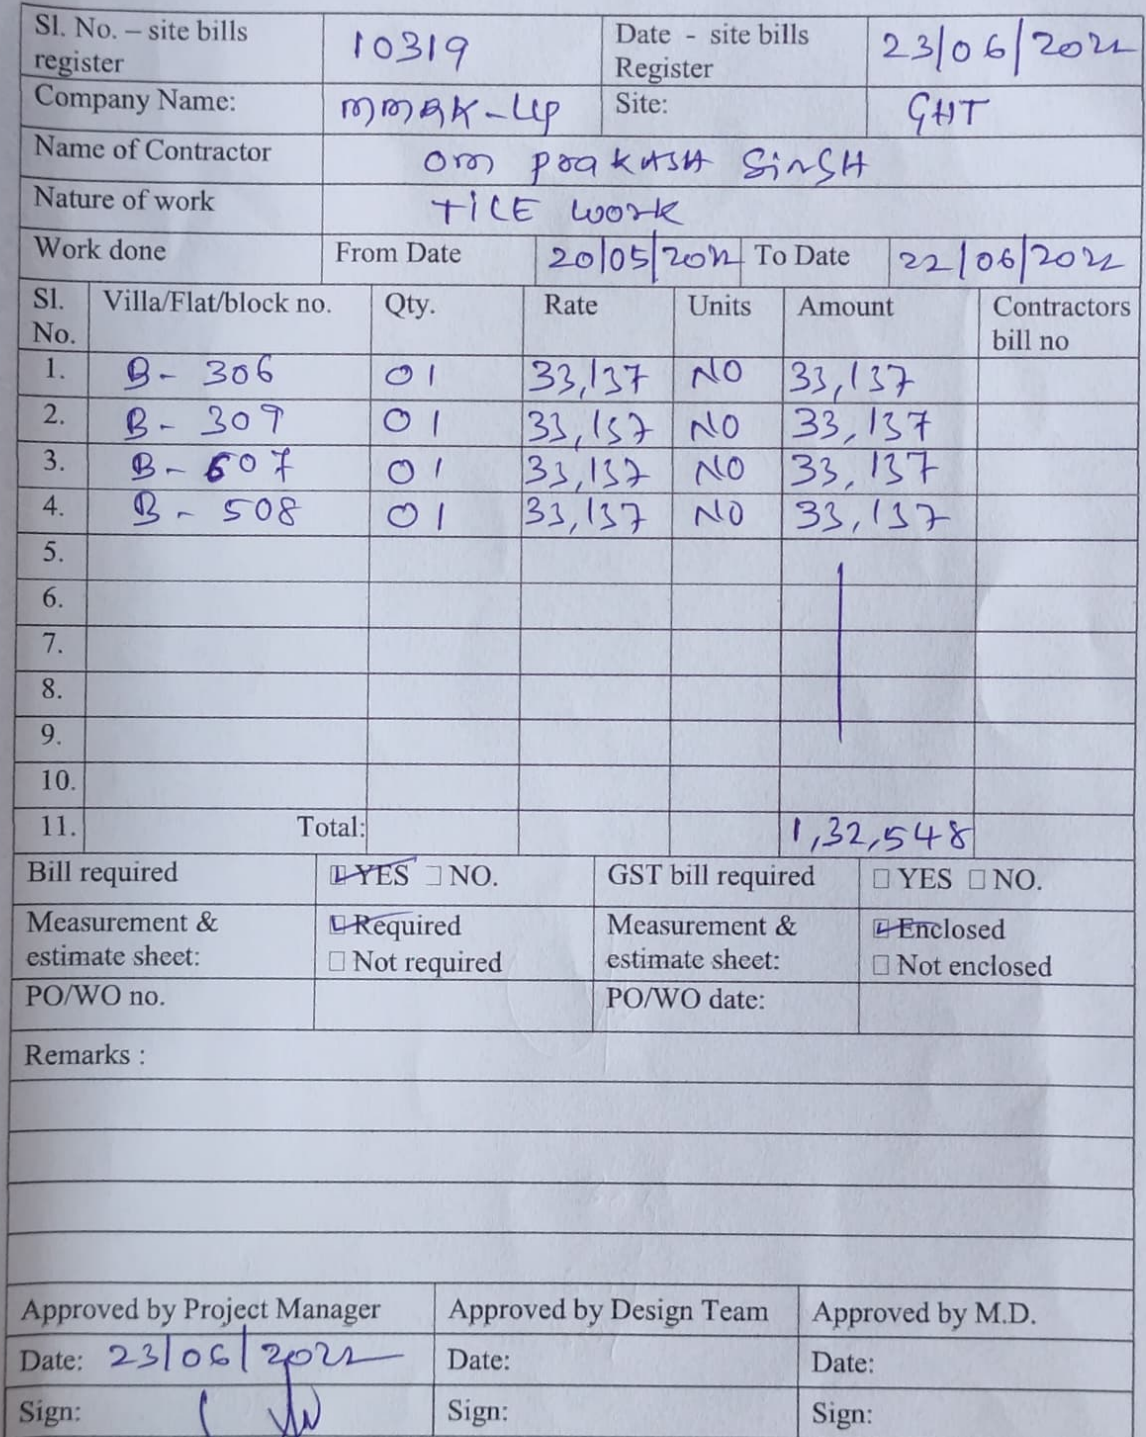 Sl. No. – site bills register 10319 Date - site bills Register 23/06/2022
Company Name: MMRK-LLP Site: GHT
Name of Contractor Om PraKASH SinGH
Nature of work TiLE work
Work done From Date 20/05/2022 To Date 22/06/2022
Sl. No. Villa/Flat/block no. Qty. Rate Units Amount Contractors bill no
1. B- 306 01 33,137 NO 33,137
2. B- 309 01 33,137 NO 33,137
3. B- 607 01 33,137 NO 33,137
4. B- 508 01 33,137 NO 33,137
5.
6.
7.
8.
9.
10.
11. Total: 1,32,548
Bill required YES NO. GST bill required YES NO.
Measurement & estimate sheet: Required Not required Measurement & estimate sheet: Enclosed Not enclosed
PO/WO no. PO/WO date:
Remarks :
Approved by Project Manager Approved by Design Team Approved by M.D.
Date: 23/06/2022 Date: Date:
Sign: Sign: Sign: